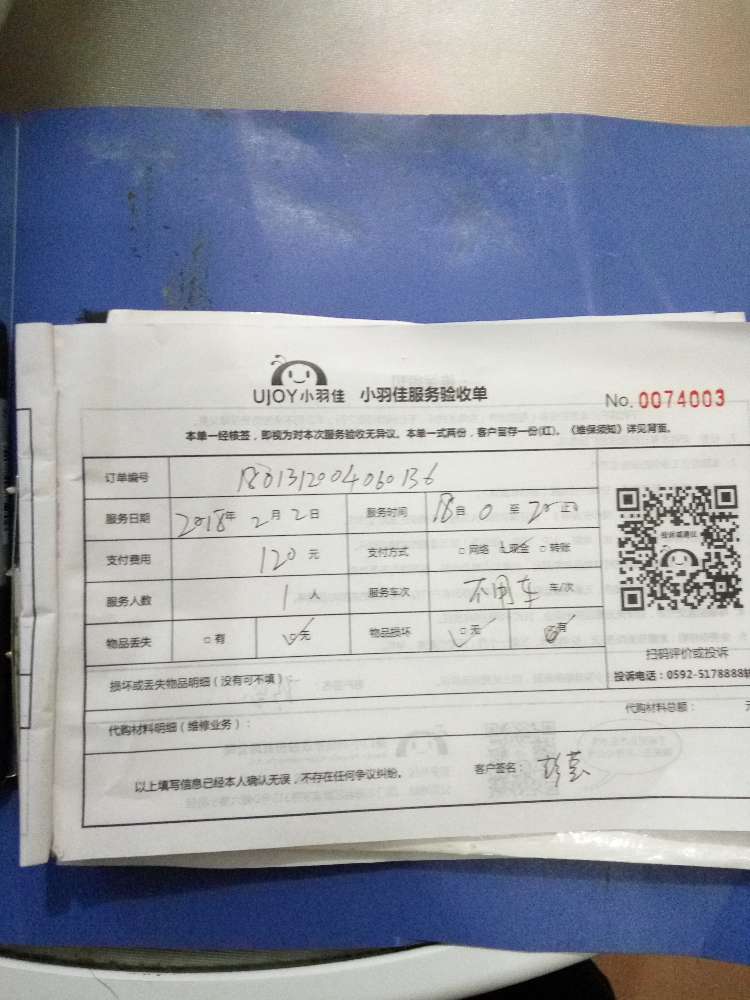 UJOY小羽佳 小羽佳服务验收单
No. 0074003
本单一经核签，即视为对本次服务验收无异议。本单一式两份，客户留存一份(红)。《维保须知》详见背面。
订单编号 1801312004060136
服务日期 2018年 2月 2日 服务时间 18自 0 至 20 止
支付费用 120元 支付方式 □网络 □现金 □转账
服务人数 1人 服务车次 不用车 车/次
物品丢失 □有 □无 物品损坏 □无 □有
投诉或建议
扫码评价或投诉
投诉电话：0592-5178888
损坏或丢失物品明细（没有可不填）：
代购材料明细（维修业务）： 代购材料总额：
以上填写信息已经本人确认无误，不存在任何争议纠纷。 客户签名：